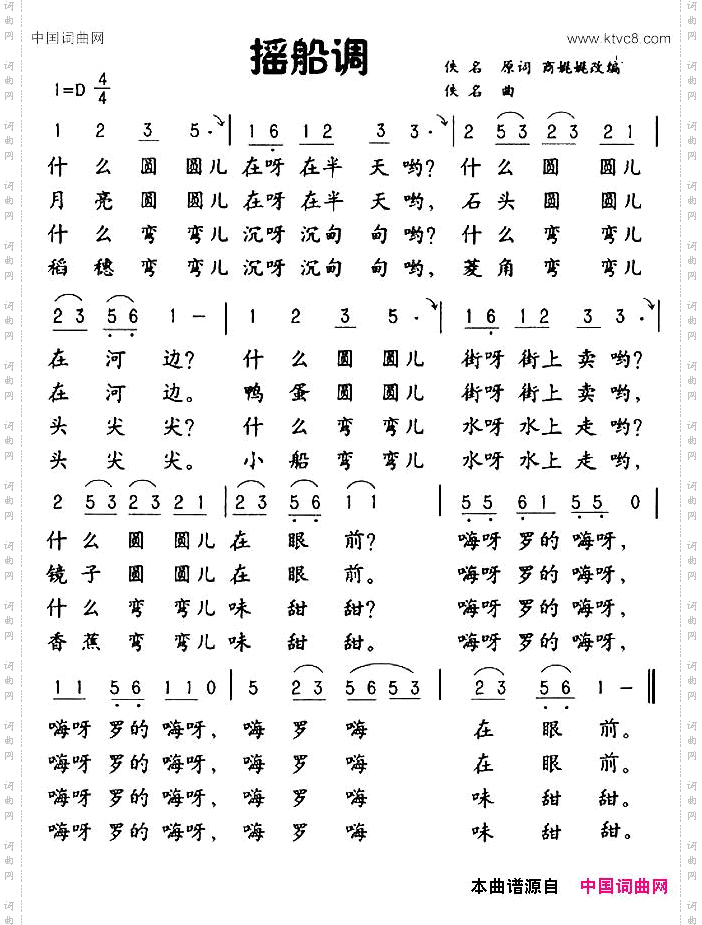 中国词曲网
摇船调
www.ktvc8.com
佚名 原词 商姚姚改编
佚名 曲
1=D 4/4
1 2 3 5· | 1 6 1 2 3 3· | 2 5 3 2 3 2 1
什么圆圆儿在呀在半天哟？什么圆圆儿
月亮圆圆儿在呀在半天哟，石头圆圆儿
什么弯弯儿沉呀沉甸甸哟？什么弯弯儿
稻穗弯弯儿沉呀沉甸甸哟，菱角弯弯儿
2 3 5 6 1 – | 1 2 3 5· | 1 6 1 2 3 3· |
在河边？什么圆圆儿街呀街上卖哟？
在河边。鸭蛋圆圆儿街呀街上卖哟，
头尖尖？什么弯弯儿水呀水上走哟？
头尖尖。小船弯弯儿水呀水上走哟，
2 5 3 2 3 2 1 | 2 3 5 6 1 1 | 5 5 6 1 5 5 0 |
什么圆圆儿在眼前？嗨呀罗的嗨呀，
镜子圆圆儿在眼前。嗨呀罗的嗨呀，
什么弯弯儿味甜甜？嗨呀罗的嗨呀，
香蕉弯弯儿味甜甜。嗨呀罗的嗨呀，
1 1 5 6 1 1 0 | 5 2 3 5 6 5 3 | 2 3 5 6 1 – ‖
嗨呀罗的嗨呀，嗨罗嗨在眼前。
嗨呀罗的嗨呀，嗨罗嗨在眼前。
嗨呀罗的嗨呀，嗨罗嗨味甜甜。
嗨呀罗的嗨呀，嗨罗嗨味甜甜。
本曲谱源自 中国词曲网